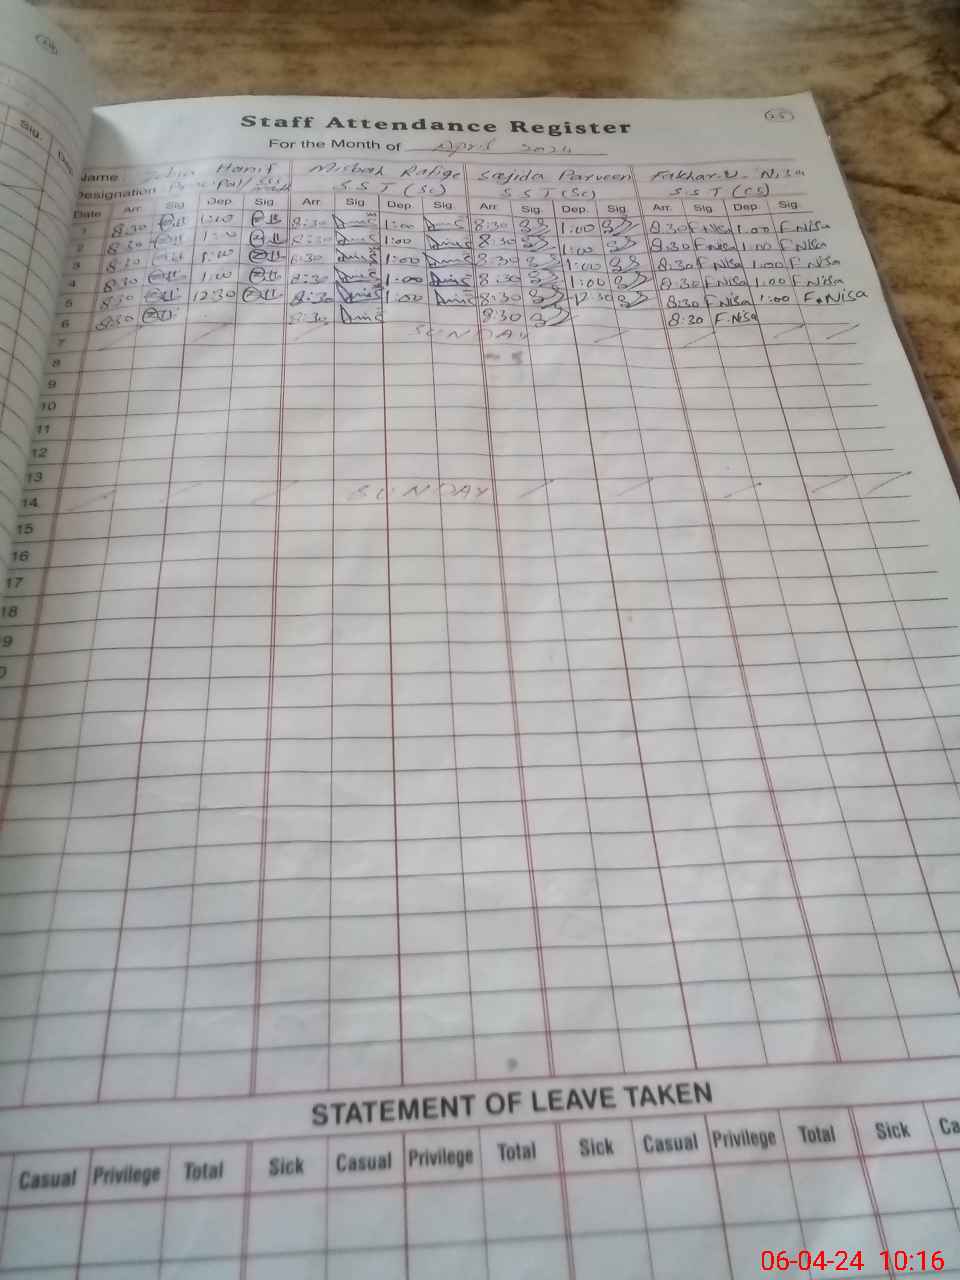 25
Staff Attendance Register
For the Month of April 2024
Name Hanif Misbah Rafiqe Sajida Parveen Fakhar-U-Nisa
Designation Principal/ SST (SC) SST (SC) SST (CS)
Date Arr. Sig. Dep. Sig. Arr. Sig. Dep. Sig. Arr. Sig. Dep. Sig. Arr. Sig. Dep. Sig.
1 8:30 1:00 8:30 1:00 8:30 1:00 8.30 F.Nisa 1.00 F.Nisa
2 8:30 1:00 8:30 1:00 8:30 1:00 8.30 F.Nisa 1.00 F.Nisa
3 8:30 1:00 8:30 1:00 8:30 1:00 8.30 F.Nisa 1.00 F.Nisa
4 8:30 1:00 8:30 1:00 8.30 1:00 8.30 F.Nisa 1.00 F.Nisa
5 8:30 12:30 8:30 1:00 8:30 12:30 8:30 F.Nisa 1:00 F.Nisa
6 8:30 8:30 8:30 8:30 F.Nisa
7 SUNDAY
8
9
10
11
12
13
14 SUNDAY
15
16
17
18
9
STATEMENT OF LEAVE TAKEN
Casual Privilege Total Sick Casual Privilege Total Sick Casual Privilege Total Sick Ca
06-04-24 10:16